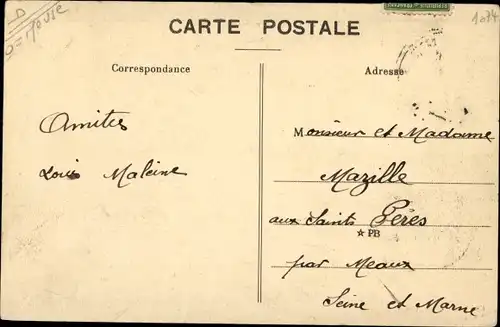 CARTE POSTALE
Correspondance
Adresse
Amitiés
Louis Maleine
Monsieur et Madame
Mazille
aux Saints Pères
☆ PB
par Meaux
Seine et Marne